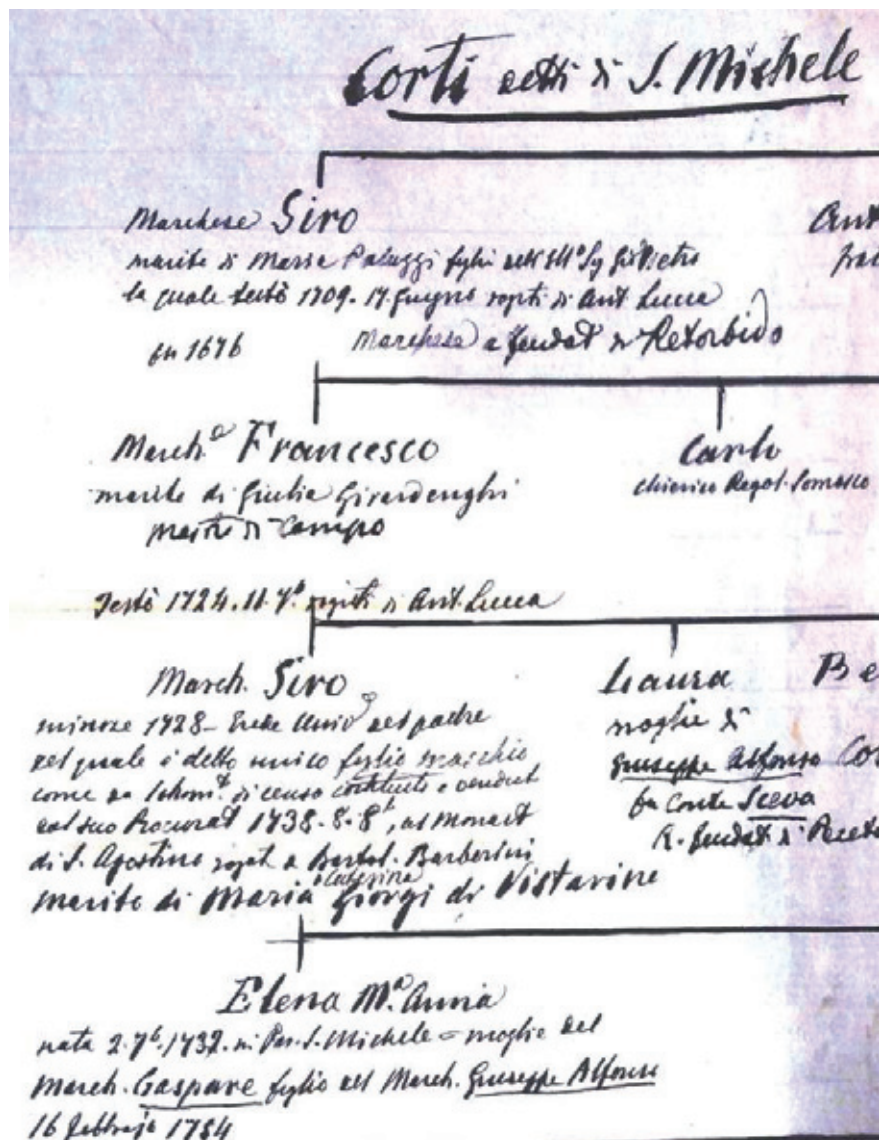 Corti detti di S. Michele
Marchese Siro
marito di Maria Paluggi figlia dell'Ill.º Sg Gio Pietro
la quale testò 1709. 17. giugno rogiti di Ant Lucca
fu 1676
Marchese a feudat di Retorbido
Ant
fra
March.e Francesco
marito di Giulia Girardenghi
di Campo
Carlo
chierico Regol. Somasco
Testò 1724. 11. 7.b rogiti di Ant. Lucca
March. Siro
minore 1728 - Erede Univ del padre
nel quale è detto unico figlio maschio
come da di censo costituito e vendut
dal suo Procurat 1738. 8. 8b, al Monast
di S. Agostino rogat a Bartol. Barberini
marito di Maria Caterina Giorgi di Vistarino
Laura
moglie di
Giuseppe Alfonso Co
fu Conte Sceva
R. feudat di Peceto
Be
Elena M.a Anna
nata 2. 7b. 1737. in Par. S. Michele = moglie del
March. Gaspare figlio del March. Giuseppe Alfonso
16 febbrajo 1754